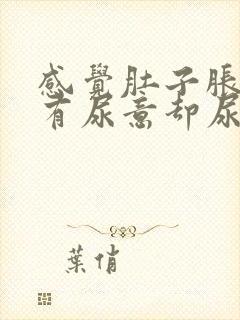 感覺肚子脹
有尿意卻尿
葉俏